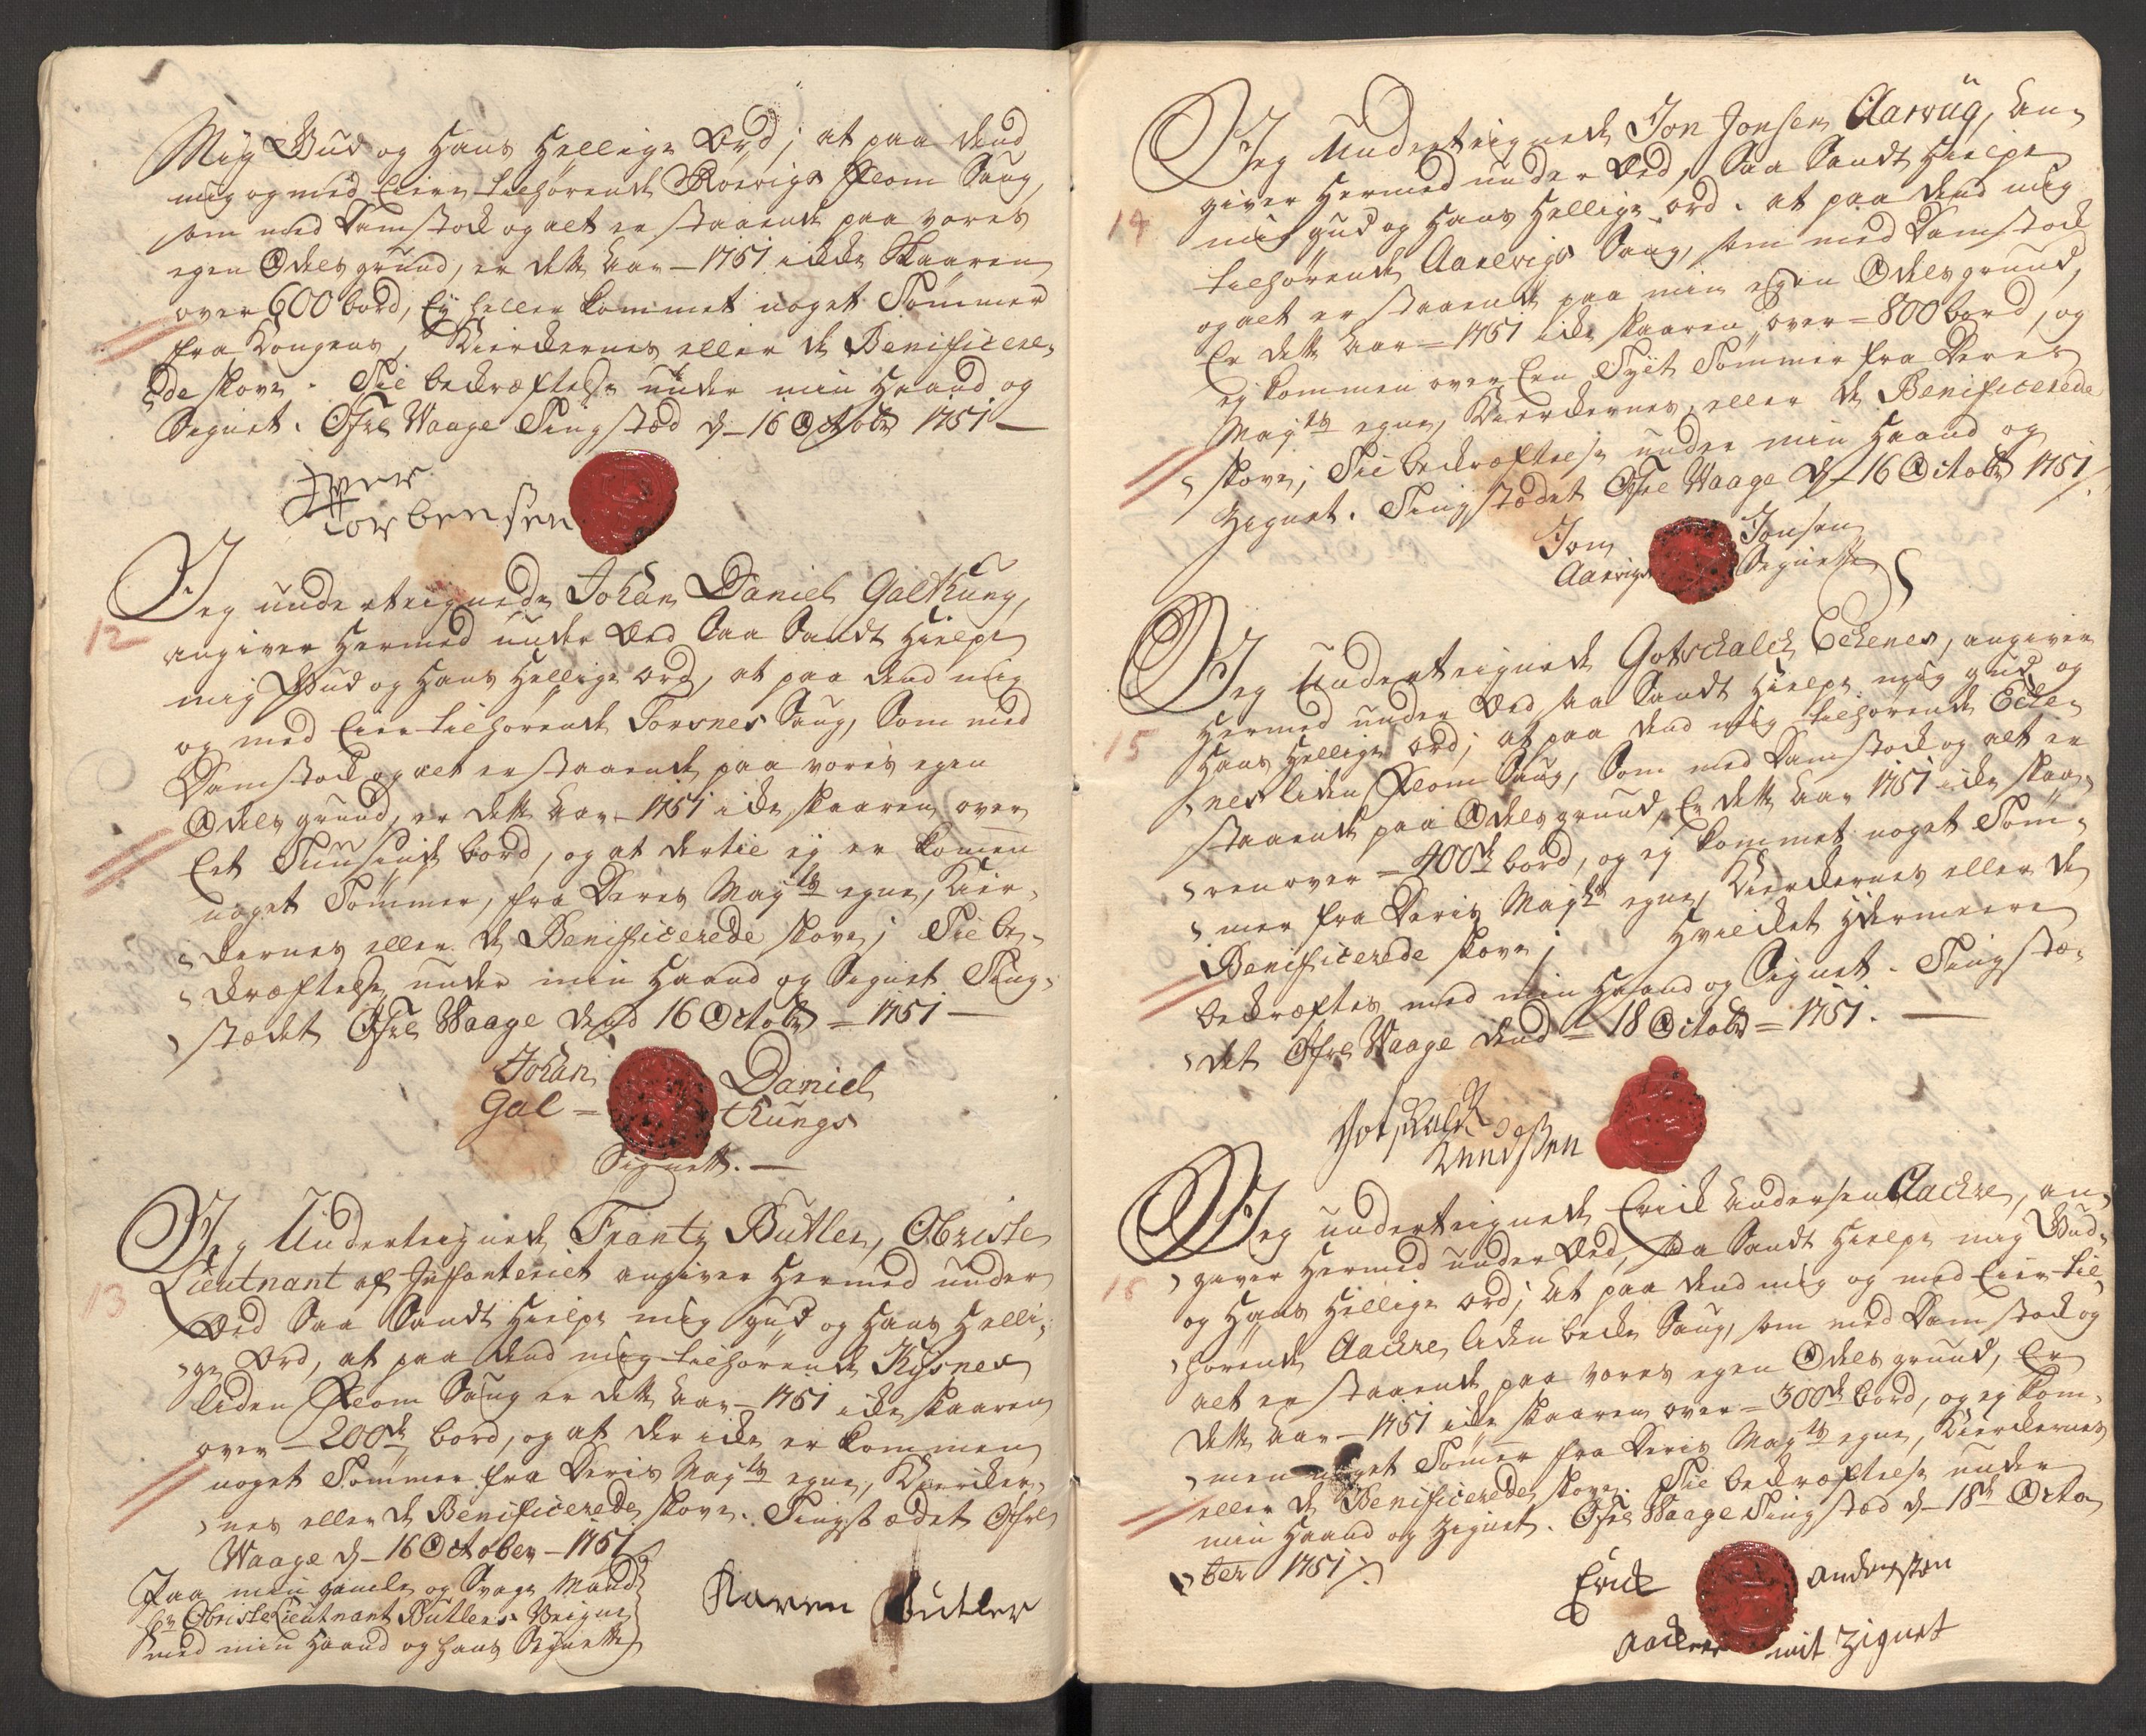 Mig Gud og Hans Hellige Ord; at paa dend
mig og med Eiere tilhørende Roevigs Flom Saug,
som med Damstock og alt er staaende paa vores
egen Odels grund, er dette Aar - 1751 icke skaaren
over 600 bord, Ey heller kommet noget Tømmer
fra Kongens, Kierckernes eller de Benificere,
de skove. Til bekræftelse under min Haand og
Signet. Øfre Waage Tingstæd d - 16 Octobr 1751 -
Iver
Torbensen
12
Jeg underteignede Johan Daniel Galthung,
angiver Hermed under Æd Saa Sandt Hielpe
mig Gud og Hans Hellige ord, at paa dend mig
og med Eiere tilhørende Torsnes Saug, Som med
Damstock og alt er staaende paa vores egen
Odels grund, er dette Aar - 1751 icke skaaren over
Eet Tuusinde bord, og at dertil ej er komen
noget Tømmer, fra Deres Mayts egne, Kier-
ckernes eller de Benificerede skove; Til be-
kræftelse under min Haand og Signet Ting-
stædet Øfre Waage dend 16 Octobr = 1751 -
Johan Daniel
Gal = thungs
Signett. -
13
Jeg Underteignede Frantz Butler, Obriste
Lieutnant af Infanteriet angiver Hermed under
Æd Saa Sandt Hielpe mig gud og Hans Helli-
ge Ord, at paa dend mig tilhørende Kisnes
liden Flom Saug er dette Aar - 1751 icke skaaren
over - 200de bord, og at der icke er kommen
noget Tømmer fra Deris Mayts egne, Kiercker,
nes eller de Benificerede skove. Tingstædet Øfre
Waage d - 16 October - 1751
Paa min gamle og Svage Mand
hr Obriste Lieutnant Butlers Veigne
med min Haand og hans Signette
Karen Butler
14
Jeg Underteignede Jon Jonsen Aarvüg, An-
giver Hermed under Æd, Saa Sandt Hielpe
mig gud og Hans Hellige ord. at paa dend mig
tilhørende Aarevigs Saug, som med Damstock
og alt er staaende paa min egen Odels grund,
Er dette Aar = 1751 icke skaaren over = 800 bord, og
ej kommen over Een Tylt Tømmer fra Deres
Mayts egne, Kierckernes, eller de Benificerede
skove; Til bekræftelse under min Haand og
Zignet. Tingstædet Øfre Waage d - 16 Octobr 1751
Jon Jonsen
Aarvigs Signette
15
Jeg Underteignede Gotschalch Echenes, angiver
Hermed under Æd saa Sandt Hielpe mig gud og
Hans Hellige ord; at paa dend mig tilhørende Eche-
nes liden Flom Saug, Som med Damstock og alt er
staaende paa Odels grund, Er dette Aar 1751 icke skaa-
ren over = 400de bord, og ej kommet noget Tøm-
mer fra Deris Mayts egne, Kierckernes eller de
Benificerede skove; Hvilcket Ydermeere
bekræftes med min Haand og Signet. Tingstæ-
det Øfre Waage dend = 18 Octobr = 1751. -
Gotschalck
Knudssen
16
Jeg underteignede Erick Andersen Aachre, an-
giver Hermed under Æd, Saa Sandt Hielpe mig Gud
og Hans Hellige ord; At paa dend mig og med Eier til-
hørende Aachre liden becke Saug, som med Damstock og
alt er staaende paa vores egen Odels grund, Er
dette Aar - 1751 icke skaaren over = 300de bord, og ej kom-
men noget Tømer fra Deris Mayts egne, Kierckernes
eller de Benificerede skove. Til bekræftelse under
min Haand og Zignet. Øfre Waage Tingstæd d - 18de Octo-
ber 1751
Erick anderssen
aackre mit Zignet